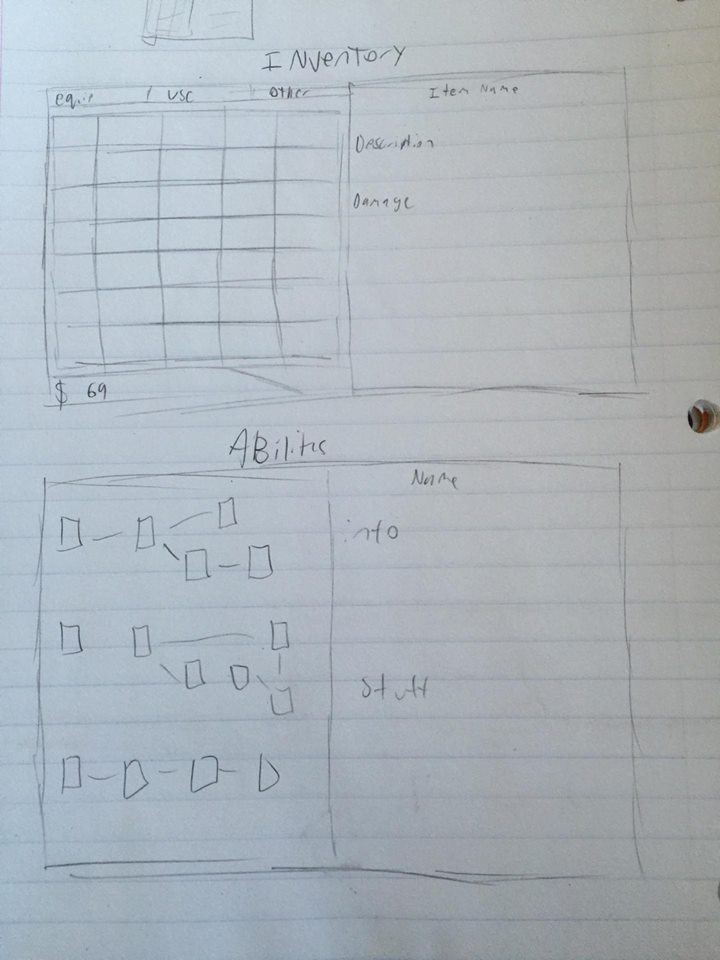 INventory
equip / use other
Item Name
Description
Damage
$ 69
ABilites
Name
info
Stuff